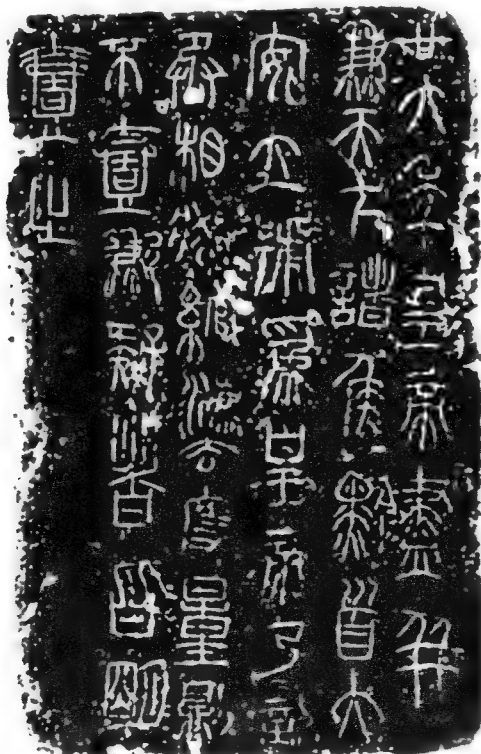 廿六年皇帝盡并
兼天下諸侯黔首大
安立號為皇帝乃詔
丞相狀綰灋度量則
不壹歉疑者皆明
壹之